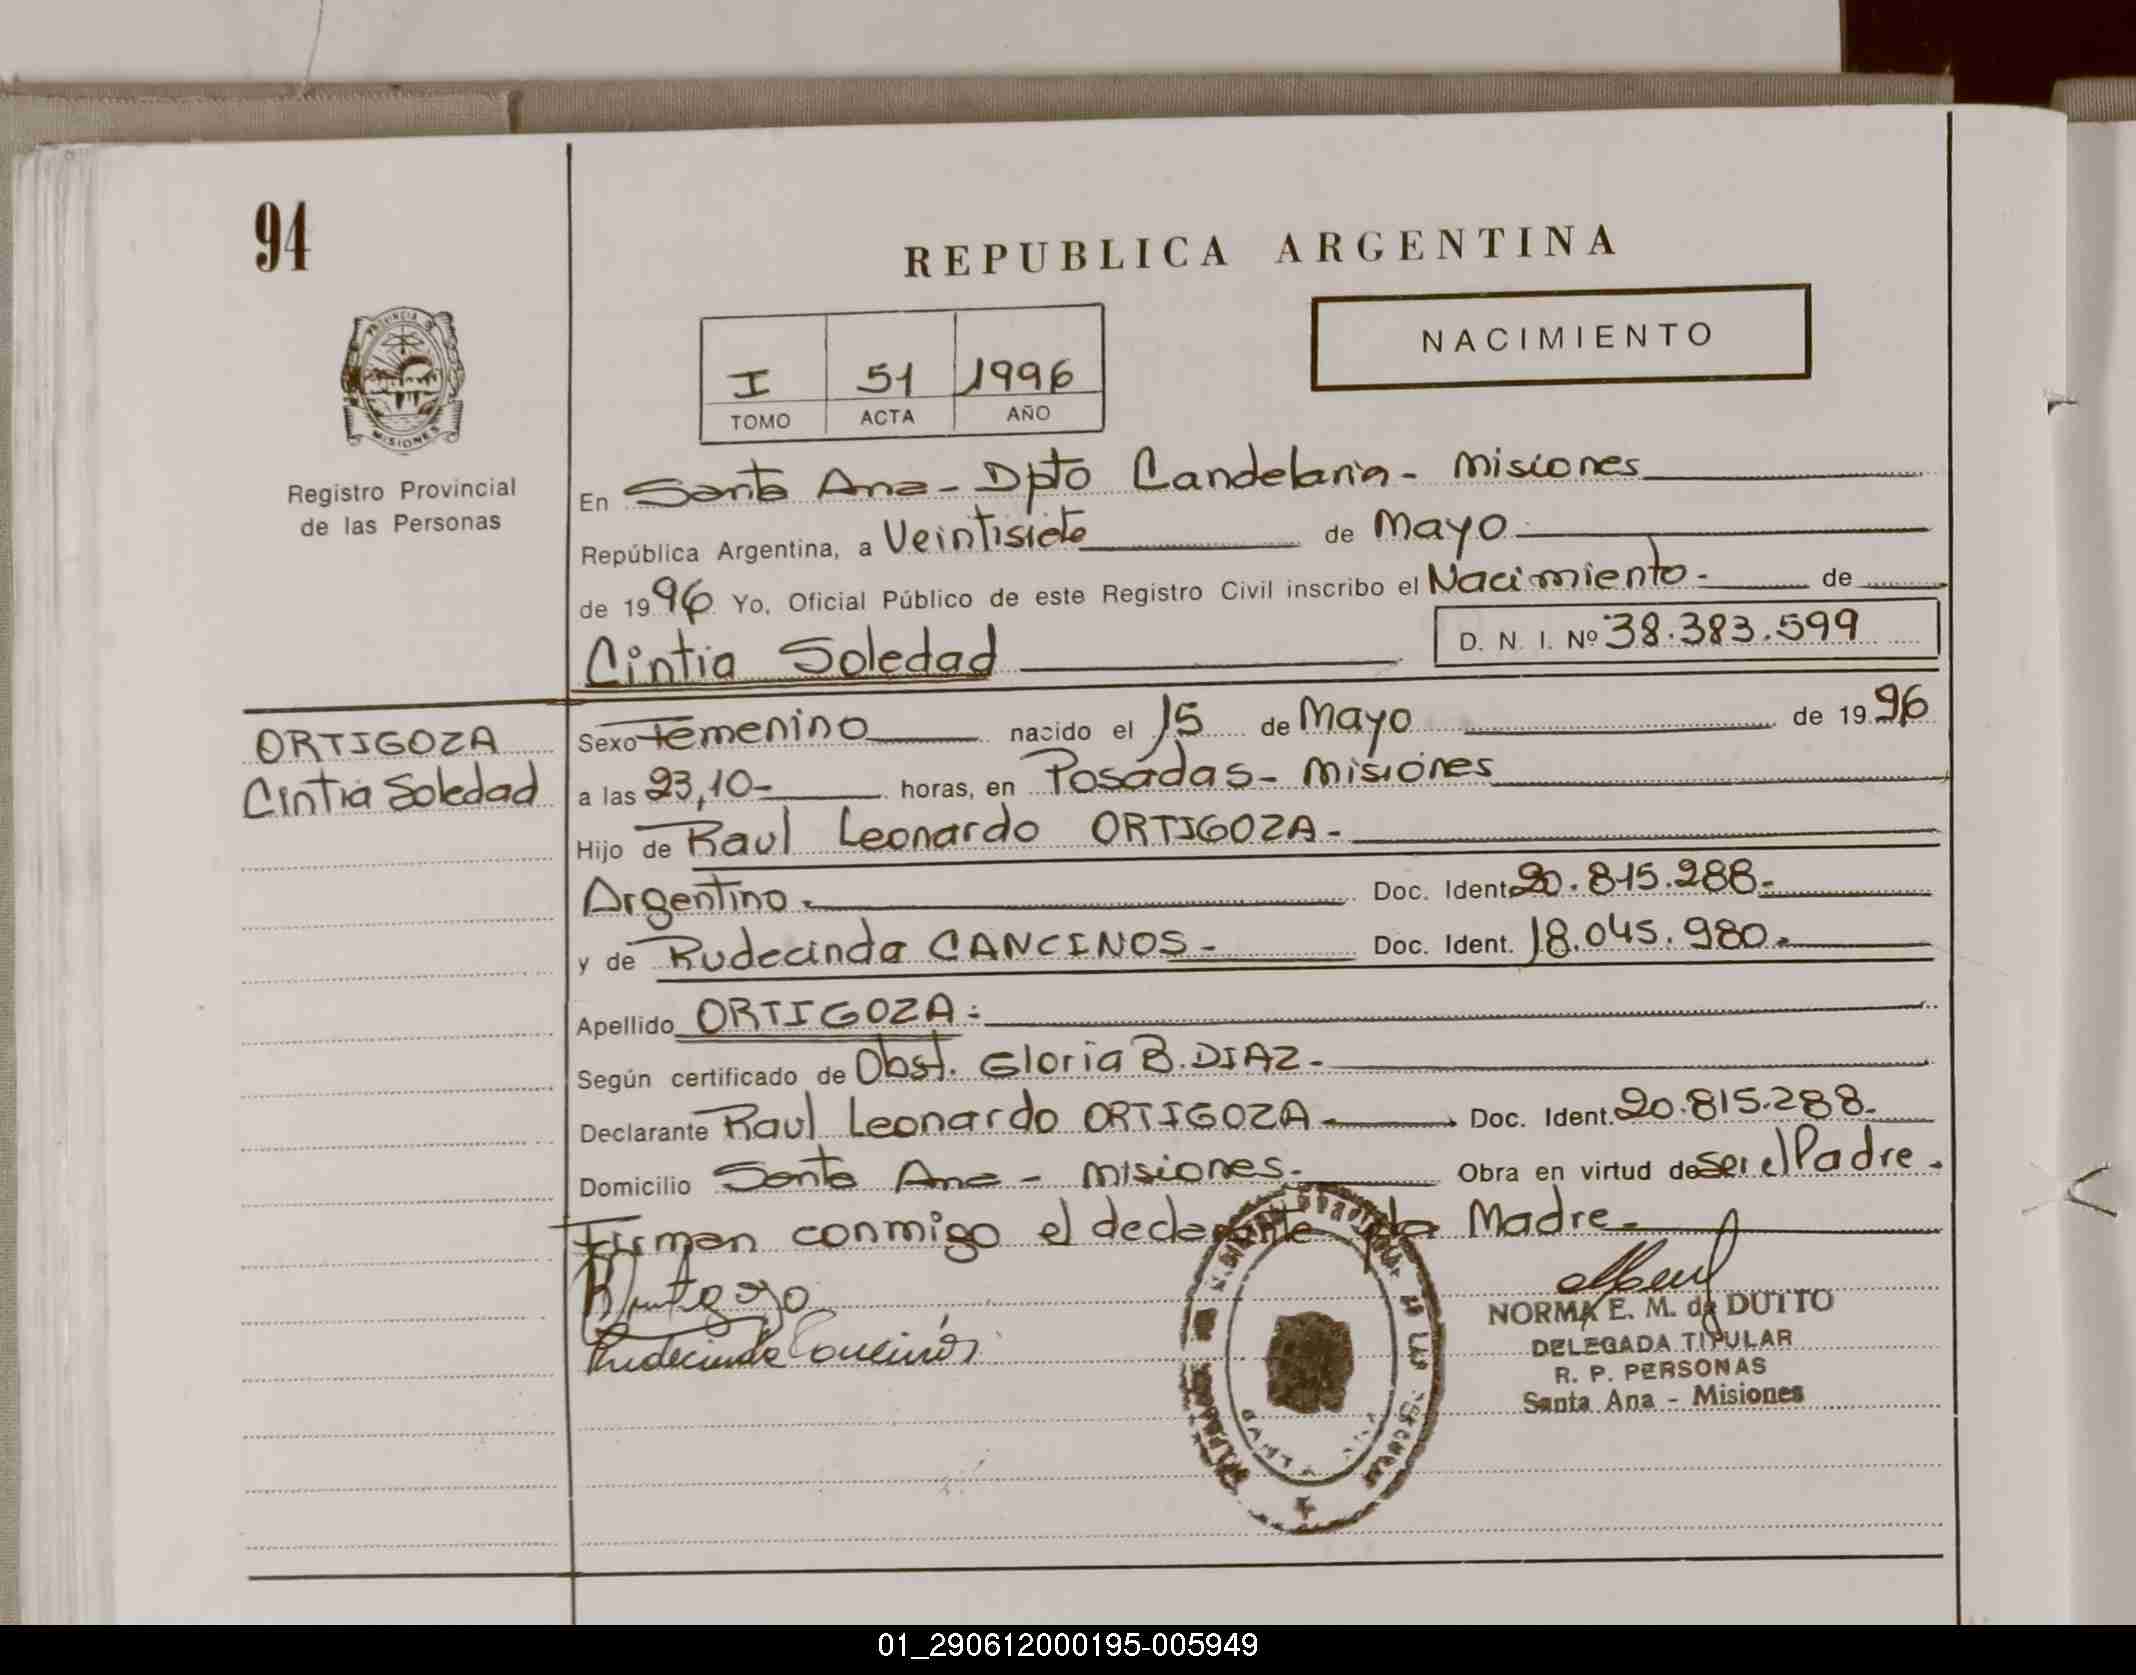 94
REPUBLICA ARGENTINA
PROVINCIA DE
MISIONES
Registro Provincial
de las Personas
I 51 1996
TOMO ACTA AÑO
NACIMIENTO
En Santa Ana - Dpto Candelaria - Misiones
República Argentina, a Veintisiete de Mayo
de 1996 Yo, Oficial Público de este Registro Civil inscribo el Nacimiento - de
Cintia Soledad
D. N. I. Nº 38.383.599
ORTIGOZA
Cintia Soledad
Sexo Femenino nacido el 15 de Mayo de 1996
a las 23,10- horas, en Posadas - Misiones
Hijo de Raul Leonardo ORTIGOZA -
Argentino - Doc. Ident. 20.815.288-
y de Rudecinda CANCINOS - Doc. Ident. 18.045.980-
Apellido ORTIGOZA -
Según certificado de Obst. Gloria B. DIAZ -
Declarante Raul Leonardo ORTIGOZA - Doc. Ident. 20.815.288-
Domicilio Santa Ana - Misiones - Obra en virtud de ser el Padre -
Firman conmigo el declarante y la Madre -
Rudecinda Cancinos
NORMA E. M. de DUTTO
DELEGADA TITULAR
R. P. PERSONAS
Santa Ana - Misiones
01_290612000195-005949